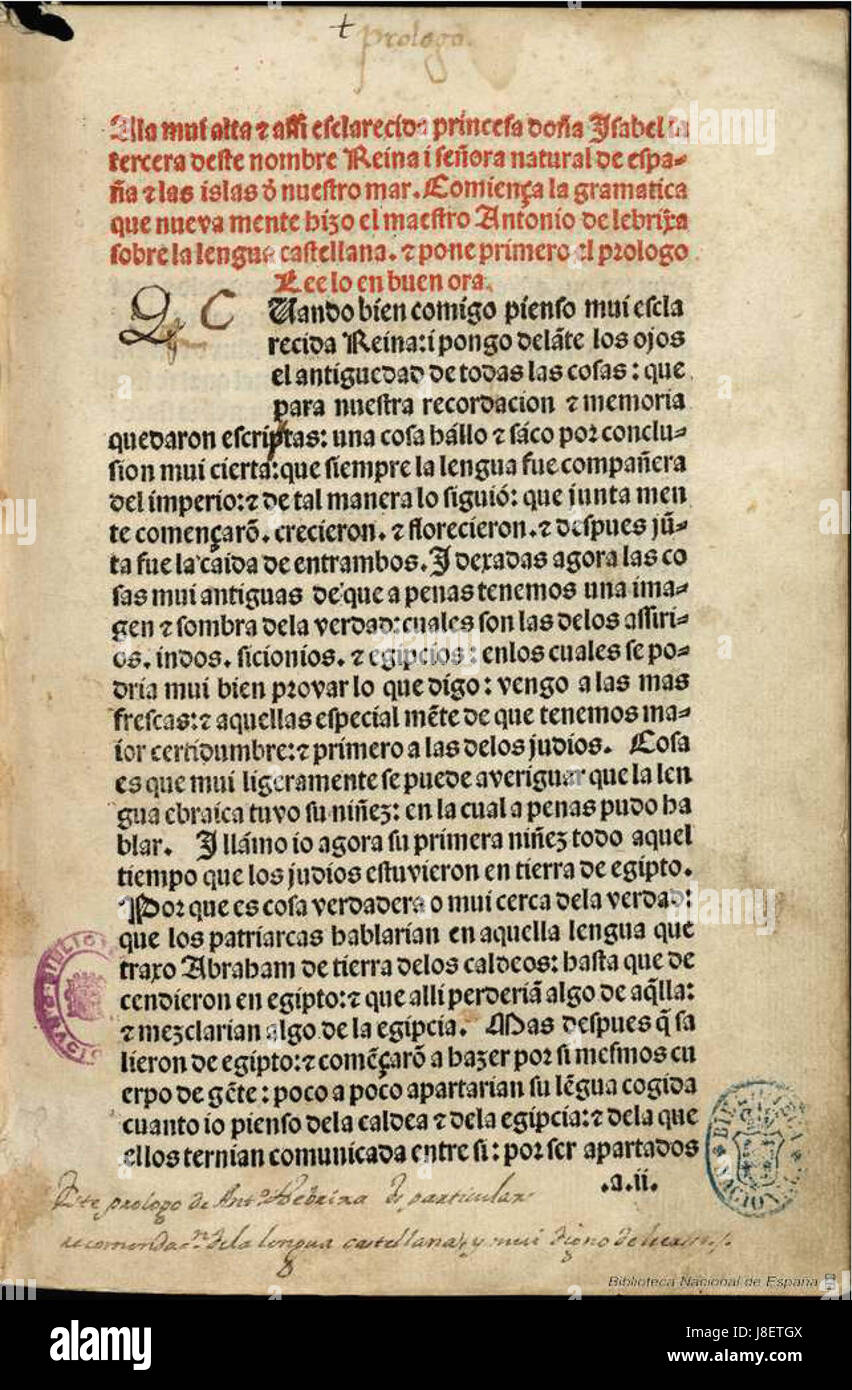 †
prologo.
Alla mui alta ⁊ assi esclarecida princesa doña Isabel la
tercera deste nombre Reina i señora natural de espa-
ña ⁊ las islas ð nuestro mar. Comiença la gramatica
que nueva mente hizo el maestro Antonio de lebrixa
sobre la lengua castellana. ⁊ pone primero el prologo
Lee lo en buen ora.
Q C Uando bien comigo pienso mui escla
recida Reina: i pongo delãte los ojos
el antiguedad de todas las cosas: que
para nuestra recordacion ⁊ memoria
quedaron escriptas: una cosa hállo ⁊ sáco por conclu-
sion mui cierta: que siempre la lengua fue compañera
del imperio: ⁊ de tal manera lo siguió: que junta men
te començarõ. crecieron. ⁊ florecieron. ⁊ despues jũ-
ta fue la caida de entrambos. I dexadas agora las co
sas mui antiguas de que a penas tenemos una ima-
gen ⁊ sombra dela verdad: cuales son las delos assiri-
os. indos. sicionios. ⁊ egipcios: enlos cuales se po-
dria mui bien provar lo que digo: vengo a las mas
frescas: ⁊ aquellas especial mẽte de que tenemos ma-
ior certidumbre: ⁊ primero a las delos judios. Cosa
es que mui ligeramente se puede averiguar que la len
gua ebraica tuvo su niñez: en la cual a penas pudo ha
blar. I llámo io agora su primera niñez todo aquel
tiempo que los judios estuvieron en tierra de egipto.
Por que es cosa verdadera o mui cerca dela verdad:
que los patriarcas hablarian en aquella lengua que
traxo Abraham de tierra delos caldeos: hasta que de
cendieron en egipto: ⁊ que alli perderiã algo de aq̃lla:
⁊ mezclarian algo de la egipcia. Mas despues q̃ sa
lieron de egipto: ⁊ comẽçarõ a hazer por si mesmos cu
erpo de gẽte: poco a poco apartarian su lẽgua cogida
cuanto io pienso dela caldea ⁊ dela egipcia: ⁊ dela que
ellos ternian comunicada entre si: por ser apartados
.a.ii.
Este prologo de Antº Nebrixa es particular
recomendaⁿ. dela lengua castellana, y mui digno de
Biblioteca Nacional de España
alamy
Image ID: J8ETGX
www.alamy.com